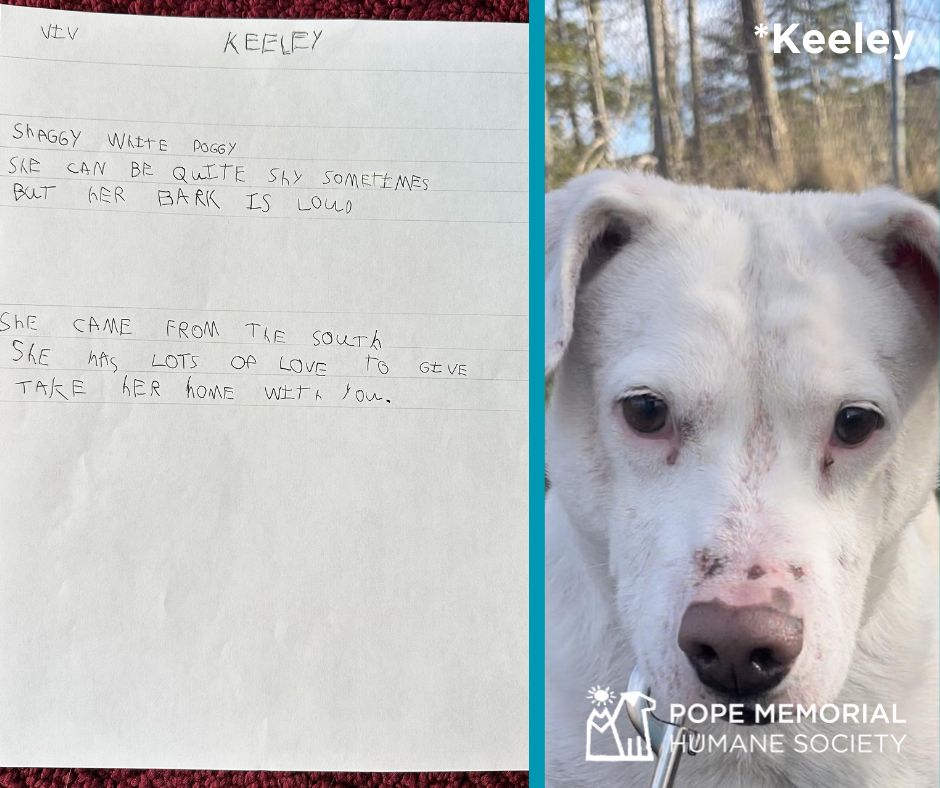 VIV
KEELEY
ShAGGY WhITE DOGGY
ShE CAN BE QUITE ShY SOMETIMES
BUT hER BARK IS LOUD
ShE CAME FROM ThE SOUTh
ShE hAS LOTS OF LOVE TO GIVE
TAKE hER hOME WITh YOU.
*Keeley
POPE MEMORIAL
HUMANE SOCIETY